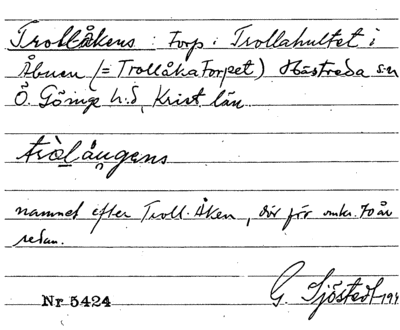 Troll-Åkens : torp i Trollahultet i
Åbuen (= Trollåkatorpet) Hästveda sn
Ö. Göinge h.d, Krist. län
namnet efter Troll-Åken, dör för omkr. 70 år
sedan.
G. Sjöstedt 194
Nr 5424